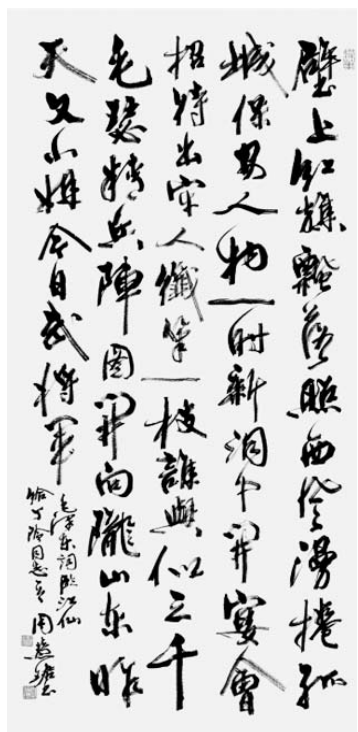 壁上红旗飄落照西风漫捲孤
城保安人物一时新洞中開宴會
招待出牢人纖筆一枝誰與似三千
毛瑟精兵陣圖開向隴山东昨
天文小姐今日武將軍
毛澤东词临江仙
给丁玲同志 周慧珺书